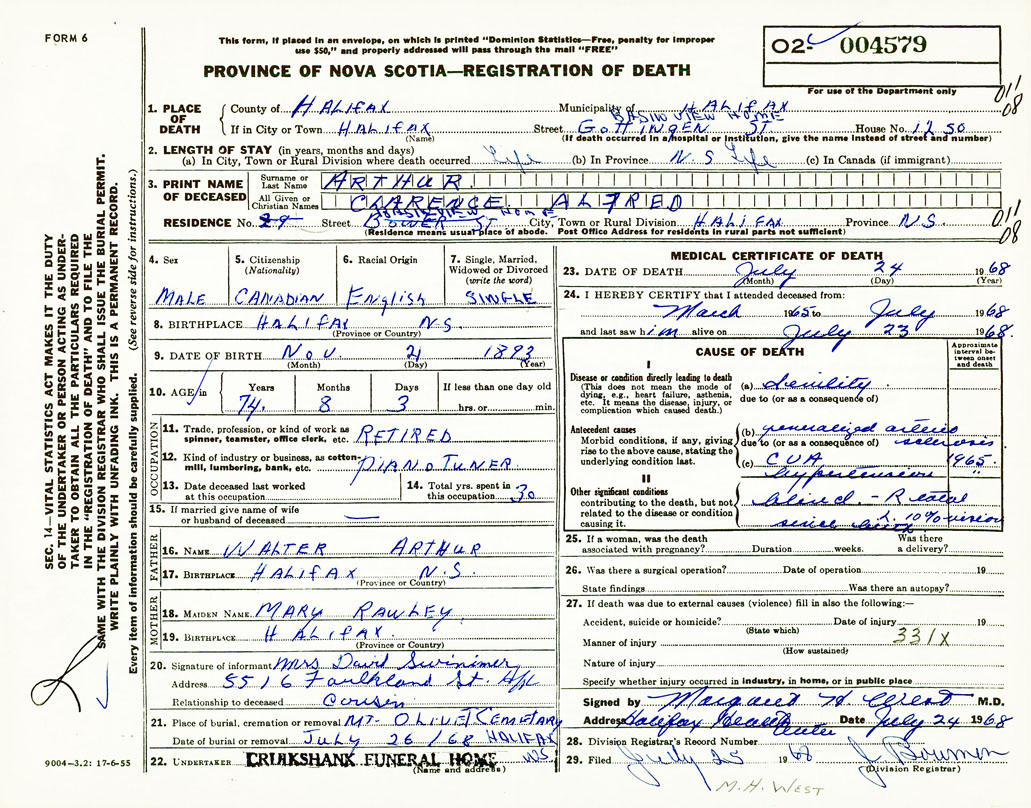 FORM 6
This form, if placed in an envelope, on which is printed "Dominion Statistics—Free, penalty for improper
use $50," and properly addressed will pass through the mail "FREE"
PROVINCE OF NOVA SCOTIA—REGISTRATION OF DEATH
02- 004579
For use of the Department only
011
08
SEC. 14—VITAL STATISTICS ACT MAKES IT THE DUTY
OF THE UNDERTAKER OR PERSON ACTING AS UNDER-
TAKER TO OBTAIN ALL THE PARTICULARS REQUIRED
IN THE "REGISTRATION OF DEATH" AND TO FILE THE
SAME WITH THE DIVISION REGISTRAR WHO SHALL ISSUE THE BURIAL PERMIT.
WRITE PLAINLY WITH UNFADING INK. THIS IS A PERMANENT RECORD.
Every item of information should be carefully supplied. (See reverse side for instructions.)
9004-3.2: 17-6-55
1. PLACE OF DEATH County of HALIFAX Municipality of HALIFAX
BASIN VIEW HOME
If in City or Town HALIFAX Street GOTTINGEN ST. House No. 1250
(Name) (If death occurred in a hospital or institution, give the name instead of street and number)
2. LENGTH OF STAY (in years, months and days)
(a) In City, Town or Rural Division where death occurred Life (b) In Province N.S Life (c) In Canada (if immigrant)
3. PRINT NAME OF DECEASED Surname or Last Name ARTHUR
All Given or Christian Names CLARENCE ALFRED
BASINVIEW HOME
RESIDENCE No. 29 Street BOWER ST City, Town or Rural Division HALIFAX Province N.S.
(Residence means usual place of abode. Post Office Address for residents in rural parts not sufficient)
011
08
4. Sex MALE
5. Citizenship (Nationality) CANADIAN
6. Racial Origin English
7. Single, Married, Widowed or Divorced (write the word) SINGLE
8. BIRTHPLACE HALIFAX N.S
(Province or Country)
9. DATE OF BIRTH NOV. 21 1893
(Month) (Day) (Year)
10. AGE in Years Months Days If less than one day old
74. 8 3 hrs. or min.
OCCUPATION
11. Trade, profession, or kind of work as spinner, teamster, office clerk, etc. RETIRED
12. Kind of industry or business, as cotton-mill, lumbering, bank, etc. PIANO TUNER
13. Date deceased last worked at this occupation
14. Total yrs. spent in this occupation 30
15. If married give name of wife or husband of deceased —
FATHER
16. NAME WALTER ARTHUR
17. BIRTHPLACE HALIFAX N.S.
(Province or Country)
MOTHER
18. MAIDEN NAME MARY RAWLEY
19. BIRTHPLACE HALIFAX.
(Province or Country)
20. Signature of informant Mrs David Swinimer
Address 5516 Faulkland St. Hfx
Relationship to deceased Cousin
21. Place of burial, cremation or removal MT. OLIVET CEMETARY
Date of burial or removal JULY 26/68 HALIFAX
22. UNDERTAKER CRUIKSHANK FUNERAL HOME NS
(Name and address)
MEDICAL CERTIFICATE OF DEATH
23. DATE OF DEATH July 24 1968
(Month) (Day) (Year)
24. I HEREBY CERTIFY that I attended deceased from:
March 1965 to July 1968
and last saw him alive on July 23 1968.
CAUSE OF DEATH
Approximate interval between onset and death
I
Disease or condition directly leading to death
(This does not mean the mode of dying, e.g., heart failure, asthenia, etc. It means the disease, injury, or complication which caused death.)
(a) debility
due to (or as a consequence of)
Antecedent causes
Morbid conditions, if any, giving rise to the above cause, stating the underlying condition last.
(b) generalized arterio
due to (or as a consequence of) sclerosis
(c) CVA 1965
hypertension "
II
Other significant conditions
contributing to the death, but not related to the disease or condition causing it.
blind - R total
L. 10% vision
since birth
25. If a woman, was the death associated with pregnancy? Duration weeks. Was there a delivery?
26. Was there a surgical operation? Date of operation 19
State findings Was there an autopsy?
27. If death was due to external causes (violence) fill in also the following:—
Accident, suicide or homicide? Date of injury 19
(State which)
Manner of injury 331X
(How sustained)
Nature of injury
Specify whether injury occurred in industry, in home, or in public place
Signed by Margaret H. West M.D.
Address Halifax Health Center Date July 24 1968
28. Division Registrar's Record Number
29. Filed July 25 1968 J. Bowmen
(Division Registrar)
M.H. WEST